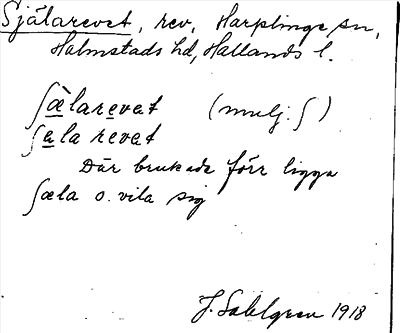 Själarevet, rev, Harplinge sn,
Halmstads hd, Hallands l.
ʃæ̀larevet (mulj: ʃ)
ʃæla revet
Där brukade förr ligga
ʃæla o. vila sig
J. Sahlgren 1918